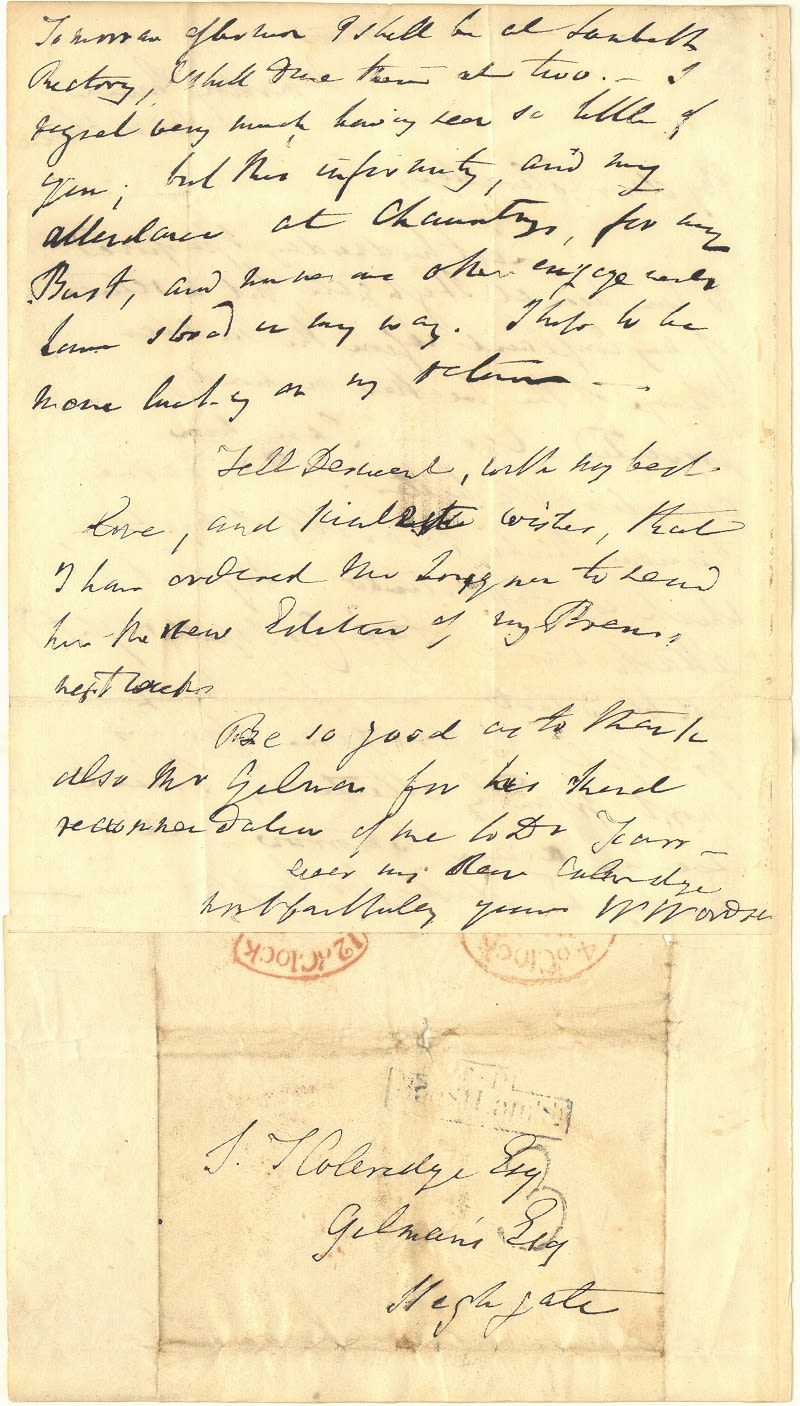 Tomorrow afternoon I shall be at Lambeth
Rectory, I shall dine there at two. – I
regret very much having seen so little of
you; but this infirmity, and my
attendance at Chauntrys, for my
Bust, and numerous other engagements
have stood in my way. I hope to be
more lucky on my return – .
Tell Derwent, with my best
love, and kindest wishes, that
I have ordered Mr Longman to send
him the new Edition of my Poems,
next week
Be so good as to thank
also Mr Gilman for his kind
recommendation of me to Dr
ever my dear Coleridge
most faithfully yours W Wordsw
12 o'Clock
4 o'Clock
S. T Coleridge Esq
Gilman's Esq
Highgate